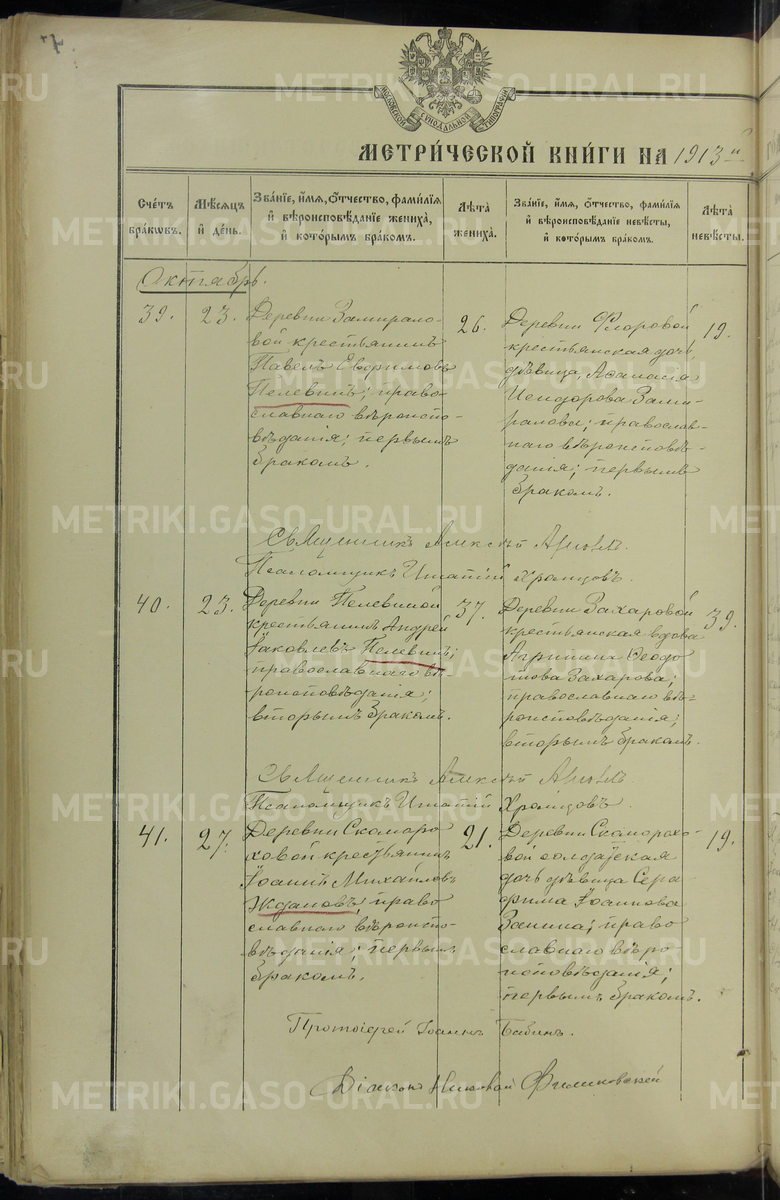 МЕТРИ́ЧЕСКОЙ КНИ́ГИ НА 1913
Сче́тъ бра́ковъ.
Мѣ́сяцъ и́ де́нь.
Зва́нїе, и́мя, ѻ́тчество, фамилїя и́ вѣроисповѣ́данїе жениха̀, и́ кото́рымъ бра́комъ.
Лѣ́та жениха̀.
Зва́нїе, и́мя, ѻ́тчество, фамилїя и́ вѣроисповѣ́данїе невѣ́сты, и́ кото́рымъ бра́комъ.
Лѣ́та невѣ́сты.
Октябрь.
39.
23.
Деревни Замирало-
вой крестьянинъ
Павелъ Евфимовъ
Пелевинъ; право
славнаго вѣроиспо-
вѣданія; первымъ
бракомъ.
26.
Деревни Фларовой
крестьянская дочь,
дѣвица, Аѳанасія
Исидорова Зами-
ралова; православ-
наго вѣроисповѣ-
данія; первымъ
бракомъ.
19.
Священникъ Алексѣй
Псаломщикъ Игнатій Храмцовъ.
40.
23.
Деревни Пелевиной
крестьянинъ Андрей
Іаковлевъ Пелевинъ;
православнаго вѣ-
роисповѣданія;
вторымъ бракомъ.
37.
Деревни Захаровой
крестьянская вдова
Агрипина Ѳеодо
това Захарова;
православнаго вѣ-
роисповѣданія;
вторымъ бракомъ.
39.
Священникъ Алексѣй
Псаломщикъ Игнатій Храмцовъ.
41.
27.
Деревни Скоморо
ховой крестьянинъ
Іоаннъ Михайловъ
Ждановъ; право
славнаго вѣроиспо-
вѣданія; первымъ
бракомъ.
21.
Деревни Скоморохо-
вой солдатская
дочь дѣвица Сера
фима Іоаннова
Занина; право
славнаго вѣро
исповѣданія;
первымъ бракомъ.
19.
Протоіерей Іоаннъ Бабинъ.
Діаконъ
METRIKI.GASO-URAL.RU